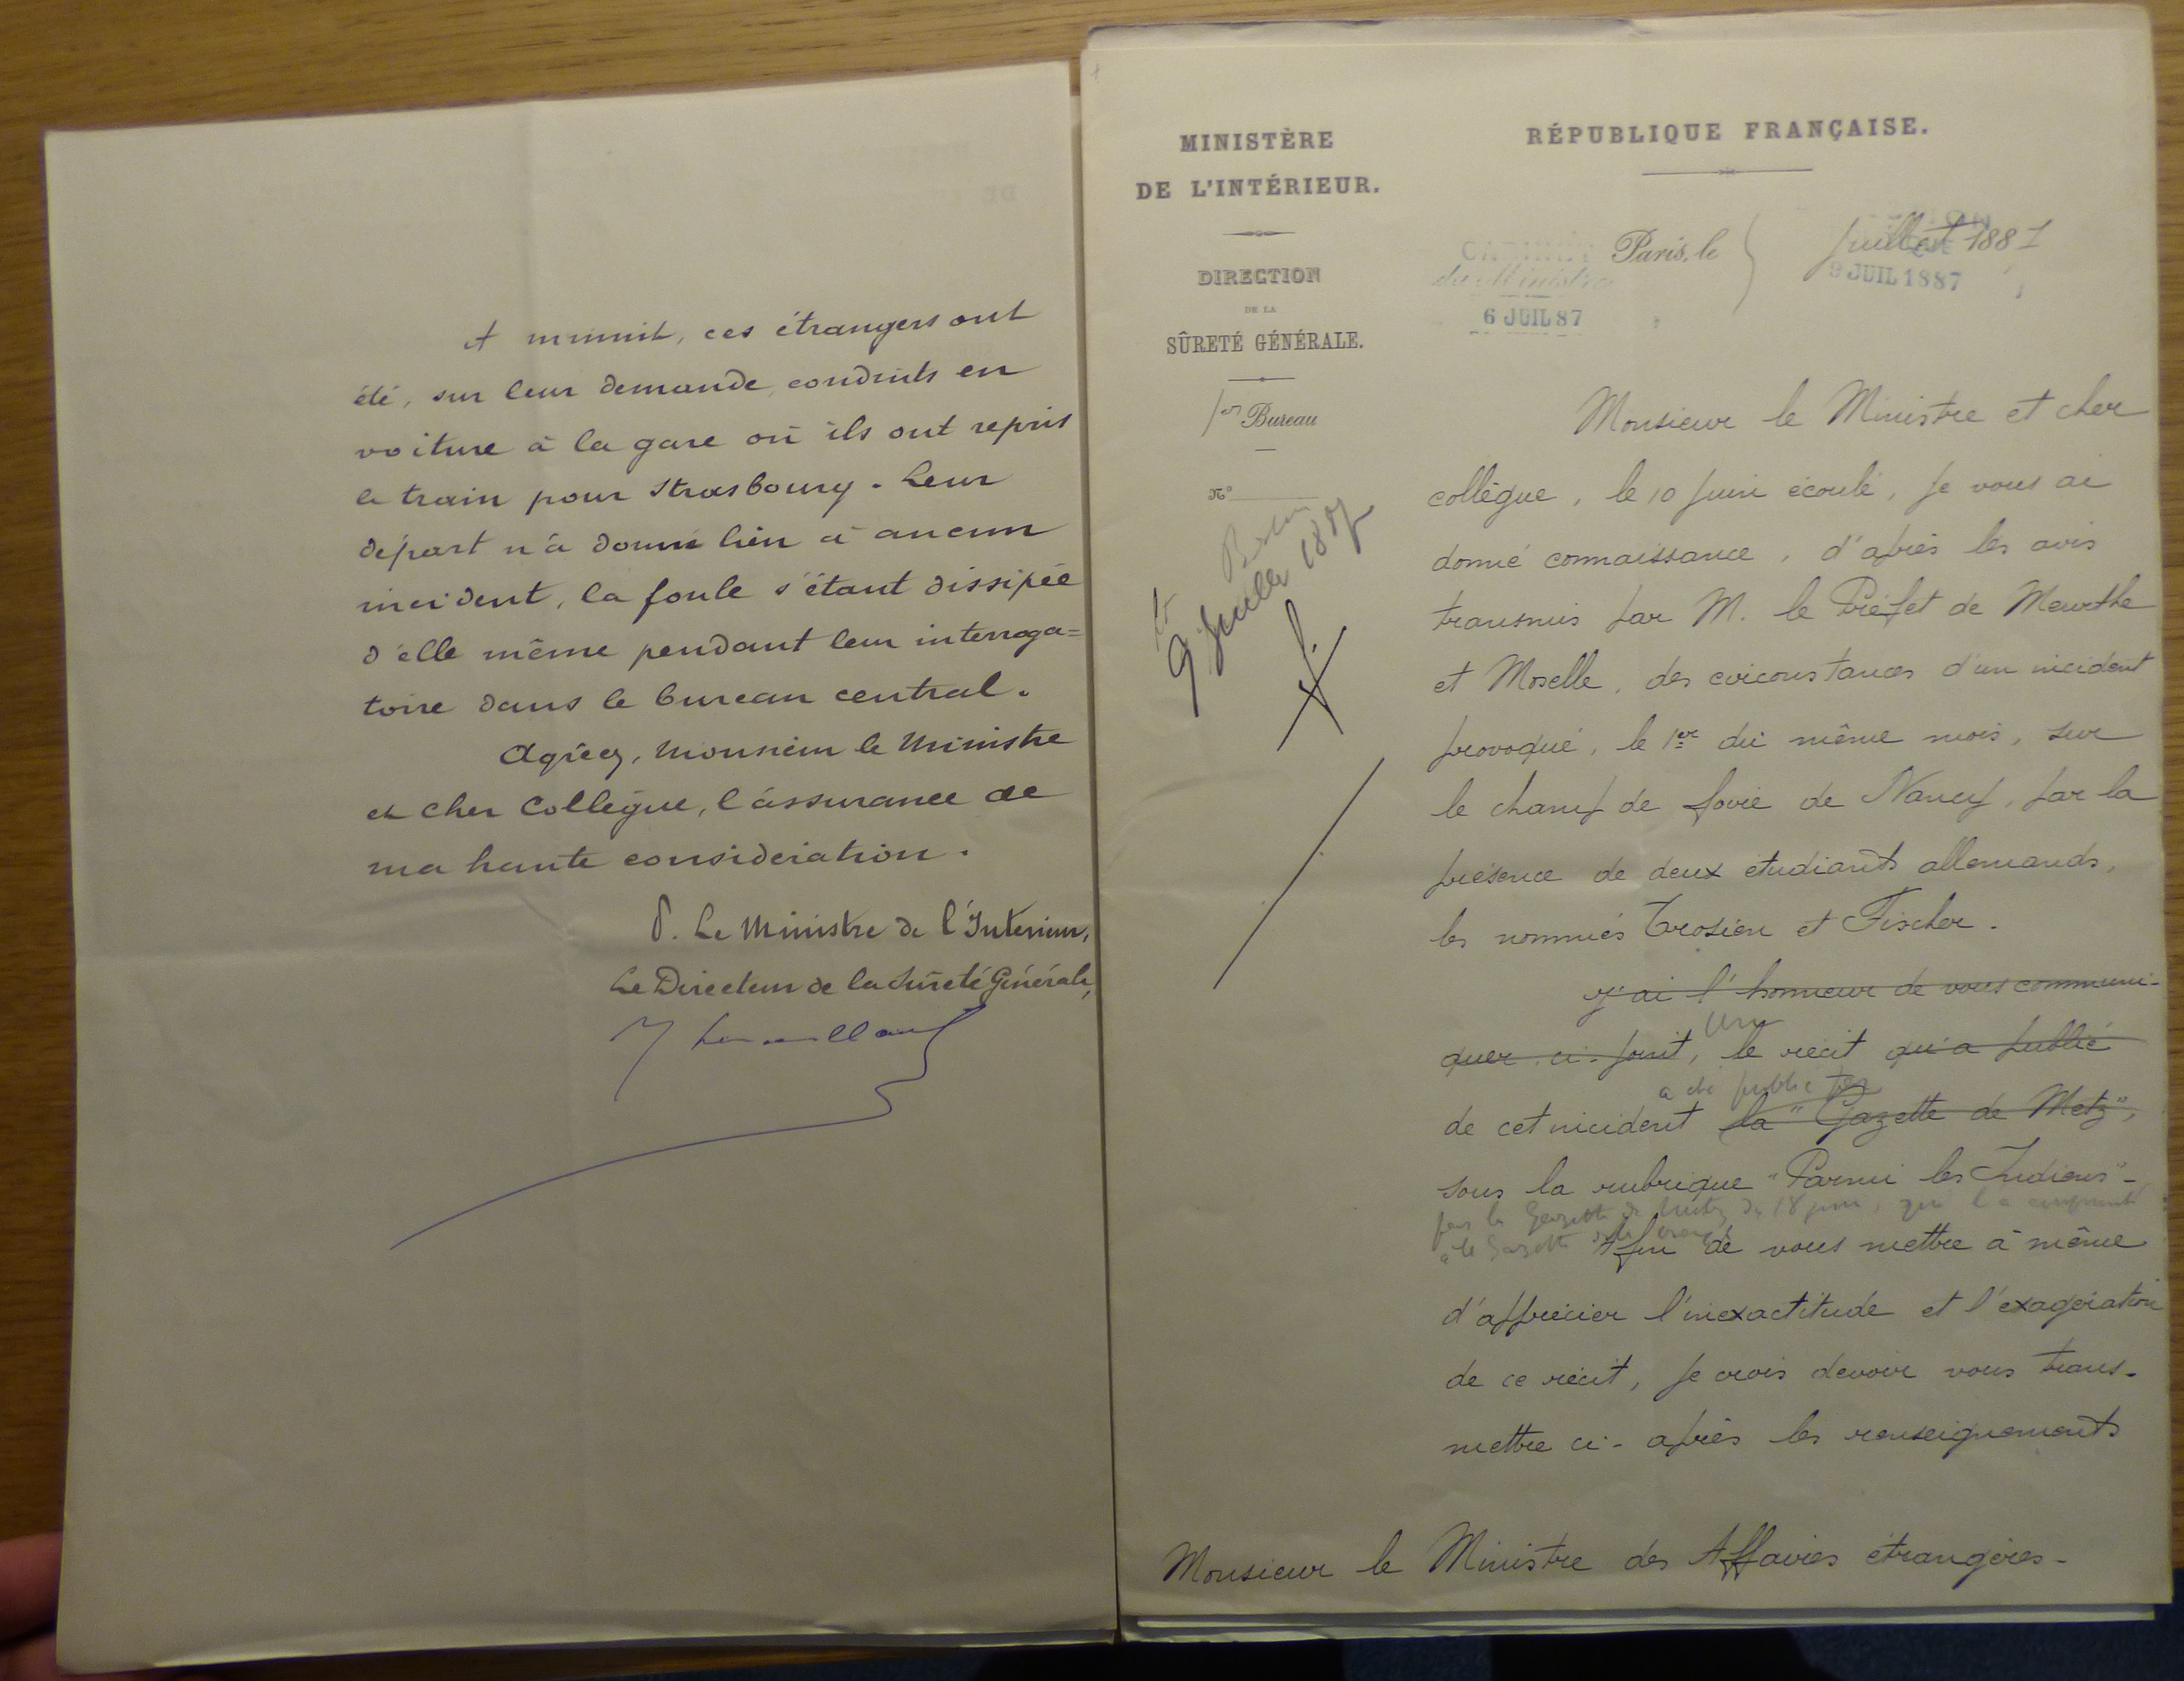 A minuit, ces étrangers ont
été, sur leur demande, conduits en
voiture à la gare où ils ont repris
le train pour Strasbourg. Leur
départ n'a donné lieu à aucun
incident, la foule s'étant dissipée
d'elle même pendant leur interroga=
toire dans le bureau central.
Agréez, Monsieur le Ministre
et cher Collègue, l'assurance de
ma haute considération.
P. Le Ministre de l'Intérieur,
Le Directeur de la Sûreté Générale,
MINISTÈRE
DE L'INTÉRIEUR.
DIRECTION
DE LA
SÛRETÉ GÉNÉRALE.
1er Bureau
N°
9 Juillet 1887
RÉPUBLIQUE FRANÇAISE.
Paris, le Juillet 1887
CABINET
du Ministre
6 JUIL 87
9 JUIL 1887
Monsieur le Ministre et cher
collègue, le 10 Juin écoulé, je vous ai
donné connaissance, d'après les avis
transmis par M. le Préfet de Meurthe
et Moselle, des circonstances d'un incident
provoqué, le 1er du même mois, sur
le champ de foire de Nancy, par la
présence de deux étudiants allemands,
les nommés Trosien et Fischer.
J'ai l'honneur de vous communi-
Un
quer ci-joint, le récit qu'a publié
a été publié par
de cet incident la "Gazette de Metz",
sous la rubrique "Parmi les Indiens"-
par la Gazette de Metz du 18 juin, qui l'a emprunté
à la Gazette
Afin de vous mettre à même
d'apprécier l'inexactitude et l'exagération
de ce récit, je crois devoir vous trans-
mettre ci-après les renseignements
Monsieur le Ministre des Affaires étrangères-